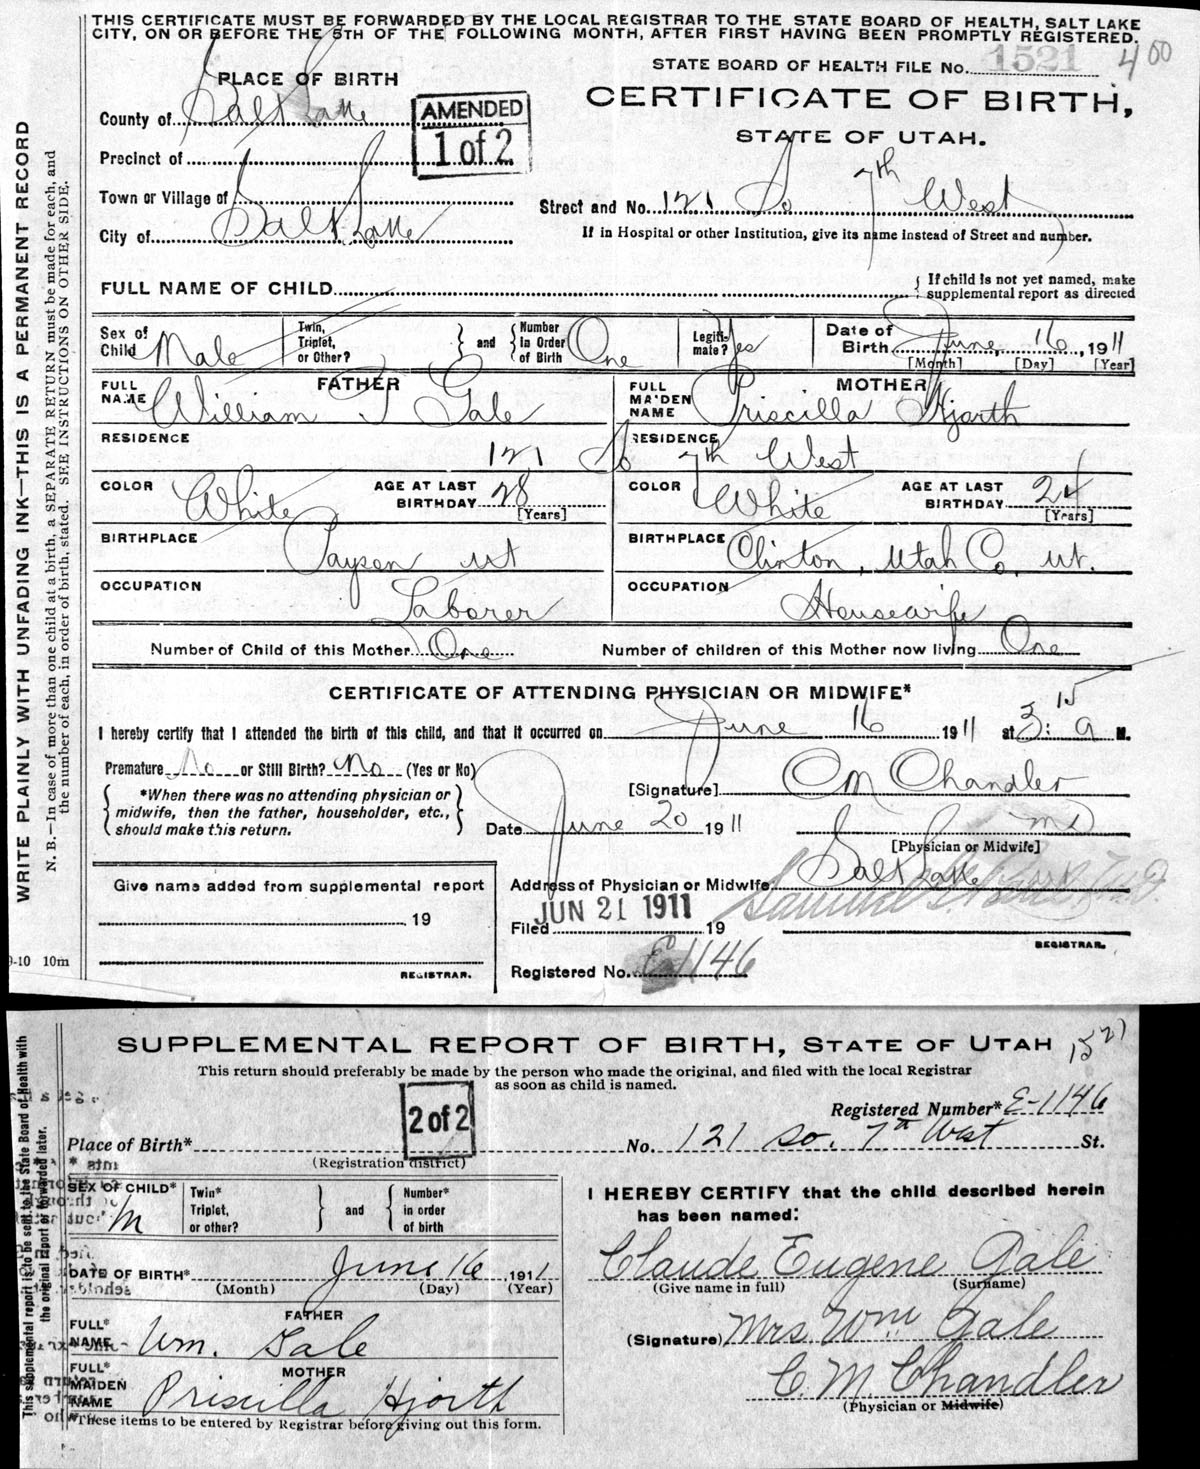 THIS CERTIFICATE MUST BE FORWARDED BY THE LOCAL REGISTRAR TO THE STATE BOARD OF HEALTH, SALT LAKE
CITY, ON OR BEFORE THE 5TH OF THE FOLLOWING MONTH, AFTER FIRST HAVING BEEN PROMPTLY REGISTERED.
STATE BOARD OF HEALTH FILE No. 1521 4 00
PLACE OF BIRTH
CERTIFICATE OF BIRTH,
STATE OF UTAH.
County of Salt Lake
AMENDED
1 of 2
Precinct of
Town or Village of
Street and No. 121 So 7th West
City of Salt Lake
If in Hospital or other Institution, give its name instead of Street and number.
FULL NAME OF CHILD
If child is not yet named, make
supplemental report as directed
Sex of Child Male
Twin, Triplet, or Other?
and
Number in Order of Birth One
Legitimate? Yes
Date of Birth June 16, 1911
[Month] [Day] [Year]
FATHER
FULL NAME William T Gale
MOTHER
FULL MAIDEN NAME Priscilla Hjorth
RESIDENCE
RESIDENCE
121 So 7th West
COLOR White
AGE AT LAST BIRTHDAY 28
[Years]
COLOR White
AGE AT LAST BIRTHDAY 24
[Years]
BIRTHPLACE Payson Ut
BIRTHPLACE Clinton, Utah Co, Ut.
OCCUPATION Laborer
OCCUPATION Housewife
Number of Child of this Mother One
Number of children of this Mother now living One
CERTIFICATE OF ATTENDING PHYSICIAN OR MIDWIFE*
I hereby certify that I attended the birth of this child, and that it occurred on June 16 1911 at 3:15 a M.
Premature No or Still Birth? No (Yes or No)
*When there was no attending physician or
midwife, then the father, householder, etc.,
should make this return.
[Signature] CM Chandler
Date June 20 1911
MD
[Physician or Midwife]
Give name added from supplemental report
19
REGISTRAR.
Address of Physician or Midwife Salt Lake
JUN 21 1911
Filed 19
REGISTRAR.
Registered No. E 1146
WRITE PLAINLY WITH UNFADING INK—THIS IS A PERMANENT RECORD
N. B.—In case of more than one child at a birth, a SEPARATE RETURN must be made for each, and
the number of each, in order of birth, stated. SEE INSTRUCTIONS ON OTHER SIDE.
9-10 10m
SUPPLEMENTAL REPORT OF BIRTH, STATE OF UTAH 1521
This return should preferably be made by the person who made the original, and filed with the local Registrar
as soon as child is named.
2 of 2
Registered Number* E-1146
Place of Birth*
No. 121 So. 7th West St.
(Registration district)
SEX OF CHILD* M
Twin* Triplet, or other?
and
Number* in order of birth
I HEREBY CERTIFY that the child described herein
has been named:
DATE OF BIRTH* June 16, 1911
(Month) (Day) (Year)
Claude Eugene Gale
(Give name in full) (Surname)
FATHER
FULL* NAME Wm. Gale
(Signature) Mrs Wm Gale
MOTHER
FULL* MAIDEN NAME Priscilla Hjorth
C. M. Chandler
(Physician or Midwife)
*These items to be entered by Registrar before giving out this form.
This supplemental report is to be sent to the State Board of Health with
the original report if forwarded later.